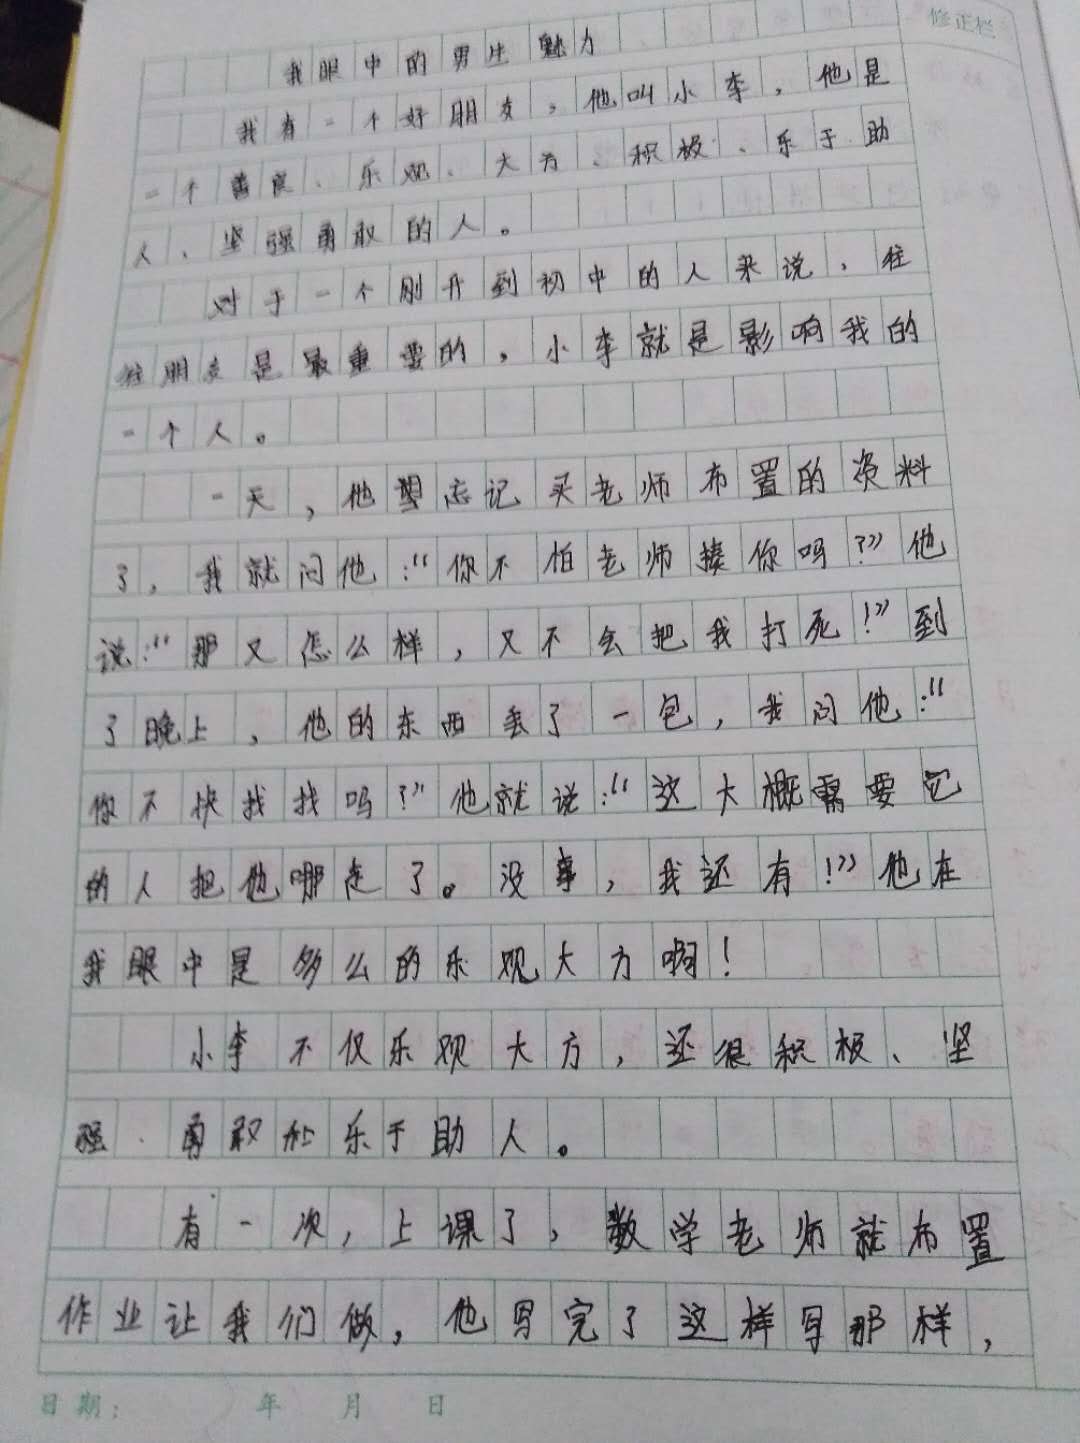 修正栏
我眼中的男生魅力
我有一个好朋友，他叫小李，他是
一个善良、乐观、大方、积极、乐于助
人、坚强勇敢的人。
对于一个刚升到初中的人来说，往
往朋友是最重要的，小李就是影响我的
一个人。
一天，他忘记买老师布置的资料
了，我就问他：“你不怕老师揍你吗？”他
说：“那又怎么样，又不会把我打死！”到
了晚上，他的东西丢了一包，我问他：“
你不快找找吗？”他就说：“这大概需要它
的人把他哪走了。没事，我还有！”他在
我眼中是多么的乐观大方啊！
小李不仅乐观大方，还很积极、坚
强、勇敢和乐于助人。
有一次，上课了，数学老师就布置
作业让我们做，他写完了这样写那样，
日期： 年 月 日